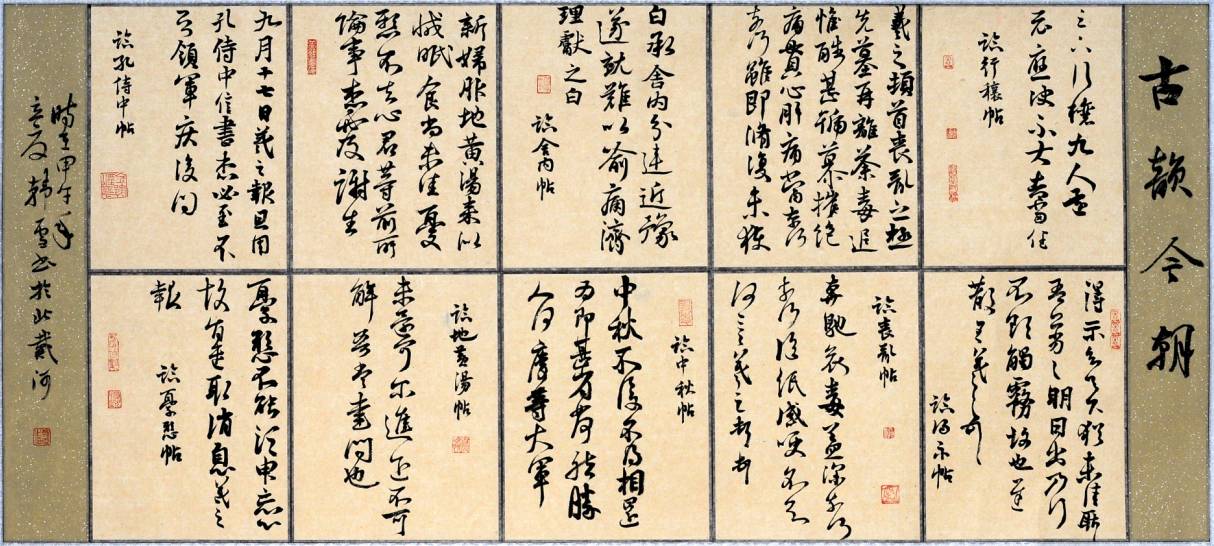 古韻今朝
足下行穰九人還
示應決不大都當佳
臨行穰帖
羲之頓首喪亂之極
先墓再離荼毒追
惟酷甚號慕摧絕
痛貫心肝痛當奈何
奈何雖即脩復未獲
白承舍內分違近豫
遂就難以喻痛濟
理獻之白
臨舍內帖
新婦服地黃湯來以
減眠食尚未佳憂
懸不去心君等前所
論事想必及謝生
九月十七日羲之報且因
孔侍中信書想必至不
知領軍疾後問
臨孔侍中帖
得示知足下猶未佳耿
耿吾亦劣劣明日出乃行
不欲觸霧故也遲
散王羲之頓首
臨得示帖
臨喪亂帖
奔馳哀毒益深奈何
奈何臨紙感哽不知
何言羲之頓首
臨中秋帖
中秋不復不得相還
為即甚省如何然勝
人何慶等大軍
臨地黃湯帖
未還可爾進退不可
解吾當書問也
憂懸不能須臾忘心
故旨遣取消息羲之
報
臨憂懸帖
時在甲午年
立夏韓雪書於北戴河